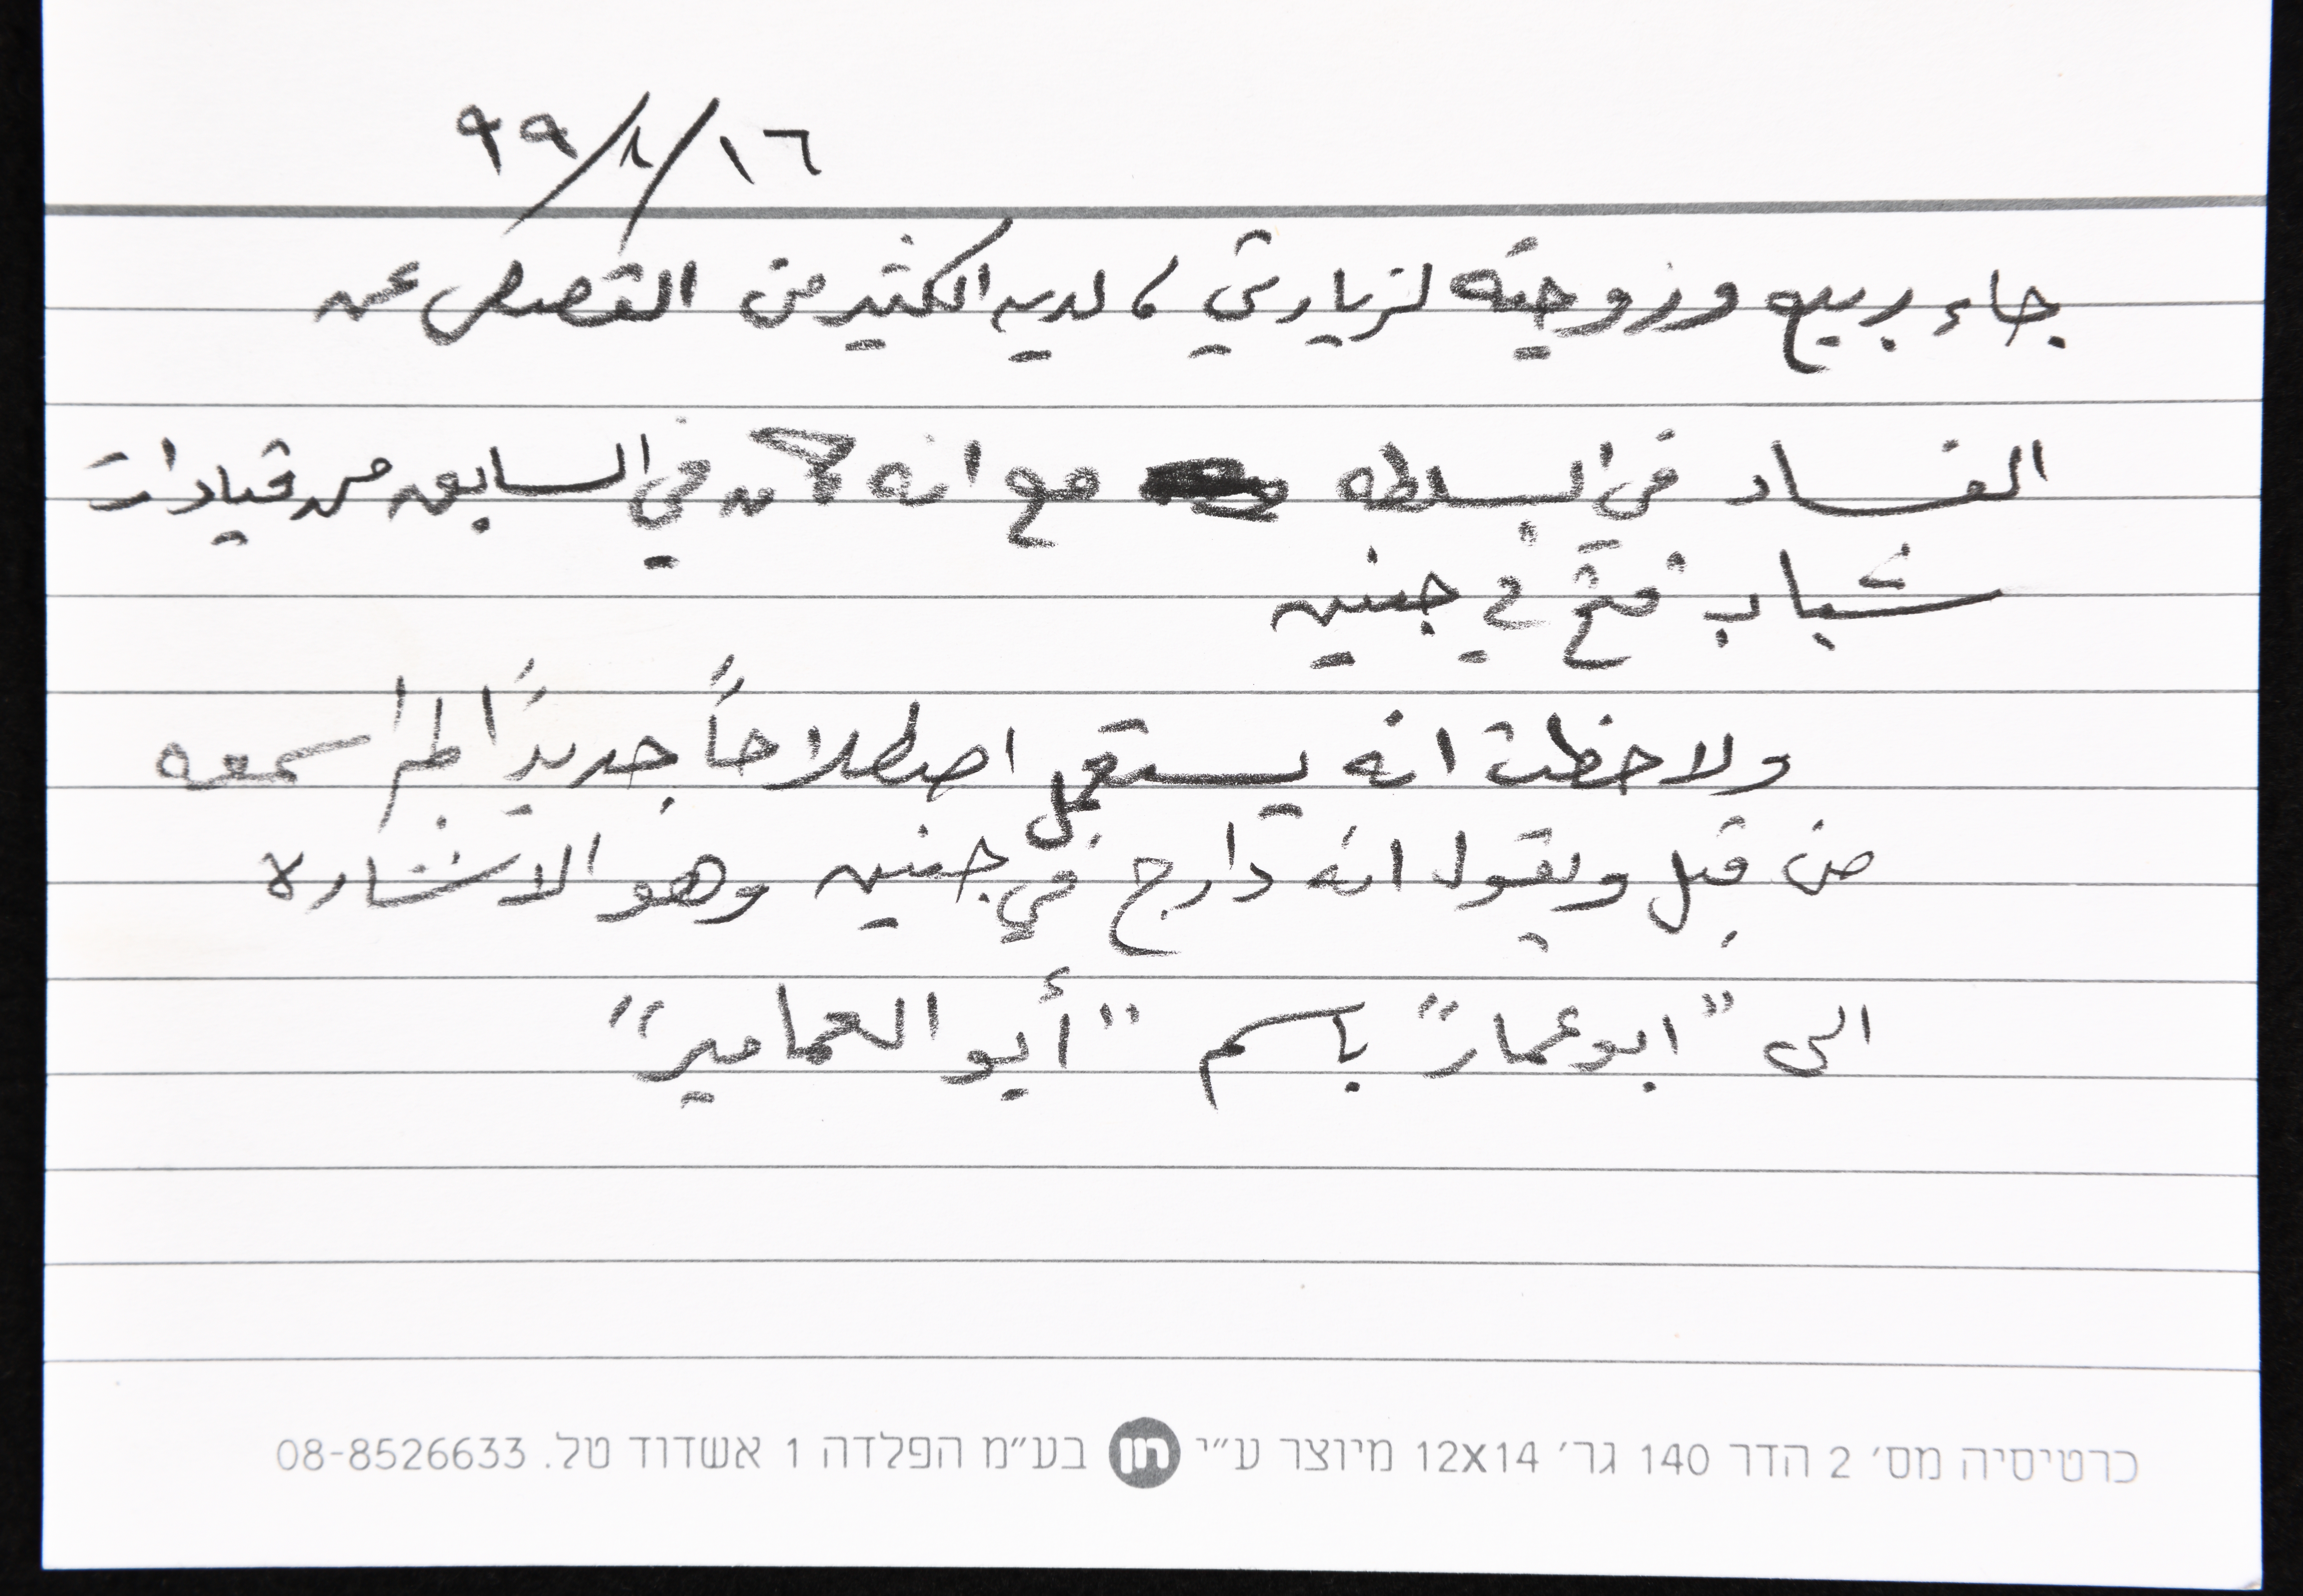 ١٦/٨/٩٩
جاء ربيع وزوجته لزيارتي، لديه الكثير من القصص عن
الفساد في السلطه مع انه كان في السابق من قيادات
شباب فتح في جنين
ولاحظت انه يستعمل اصطلاحاً جديداً لم اسمعه
من قبل ويقول انه دارج في جنين وهو الاشارة
الى "ابو عمار" باسم "أبو العمامير"
כרטיסיה מס׳ 2 הדר 140 גר׳ 12X14 מיוצר ע״י חן בע״מ הפלדה 1 אשדוד טל. 08-8526633